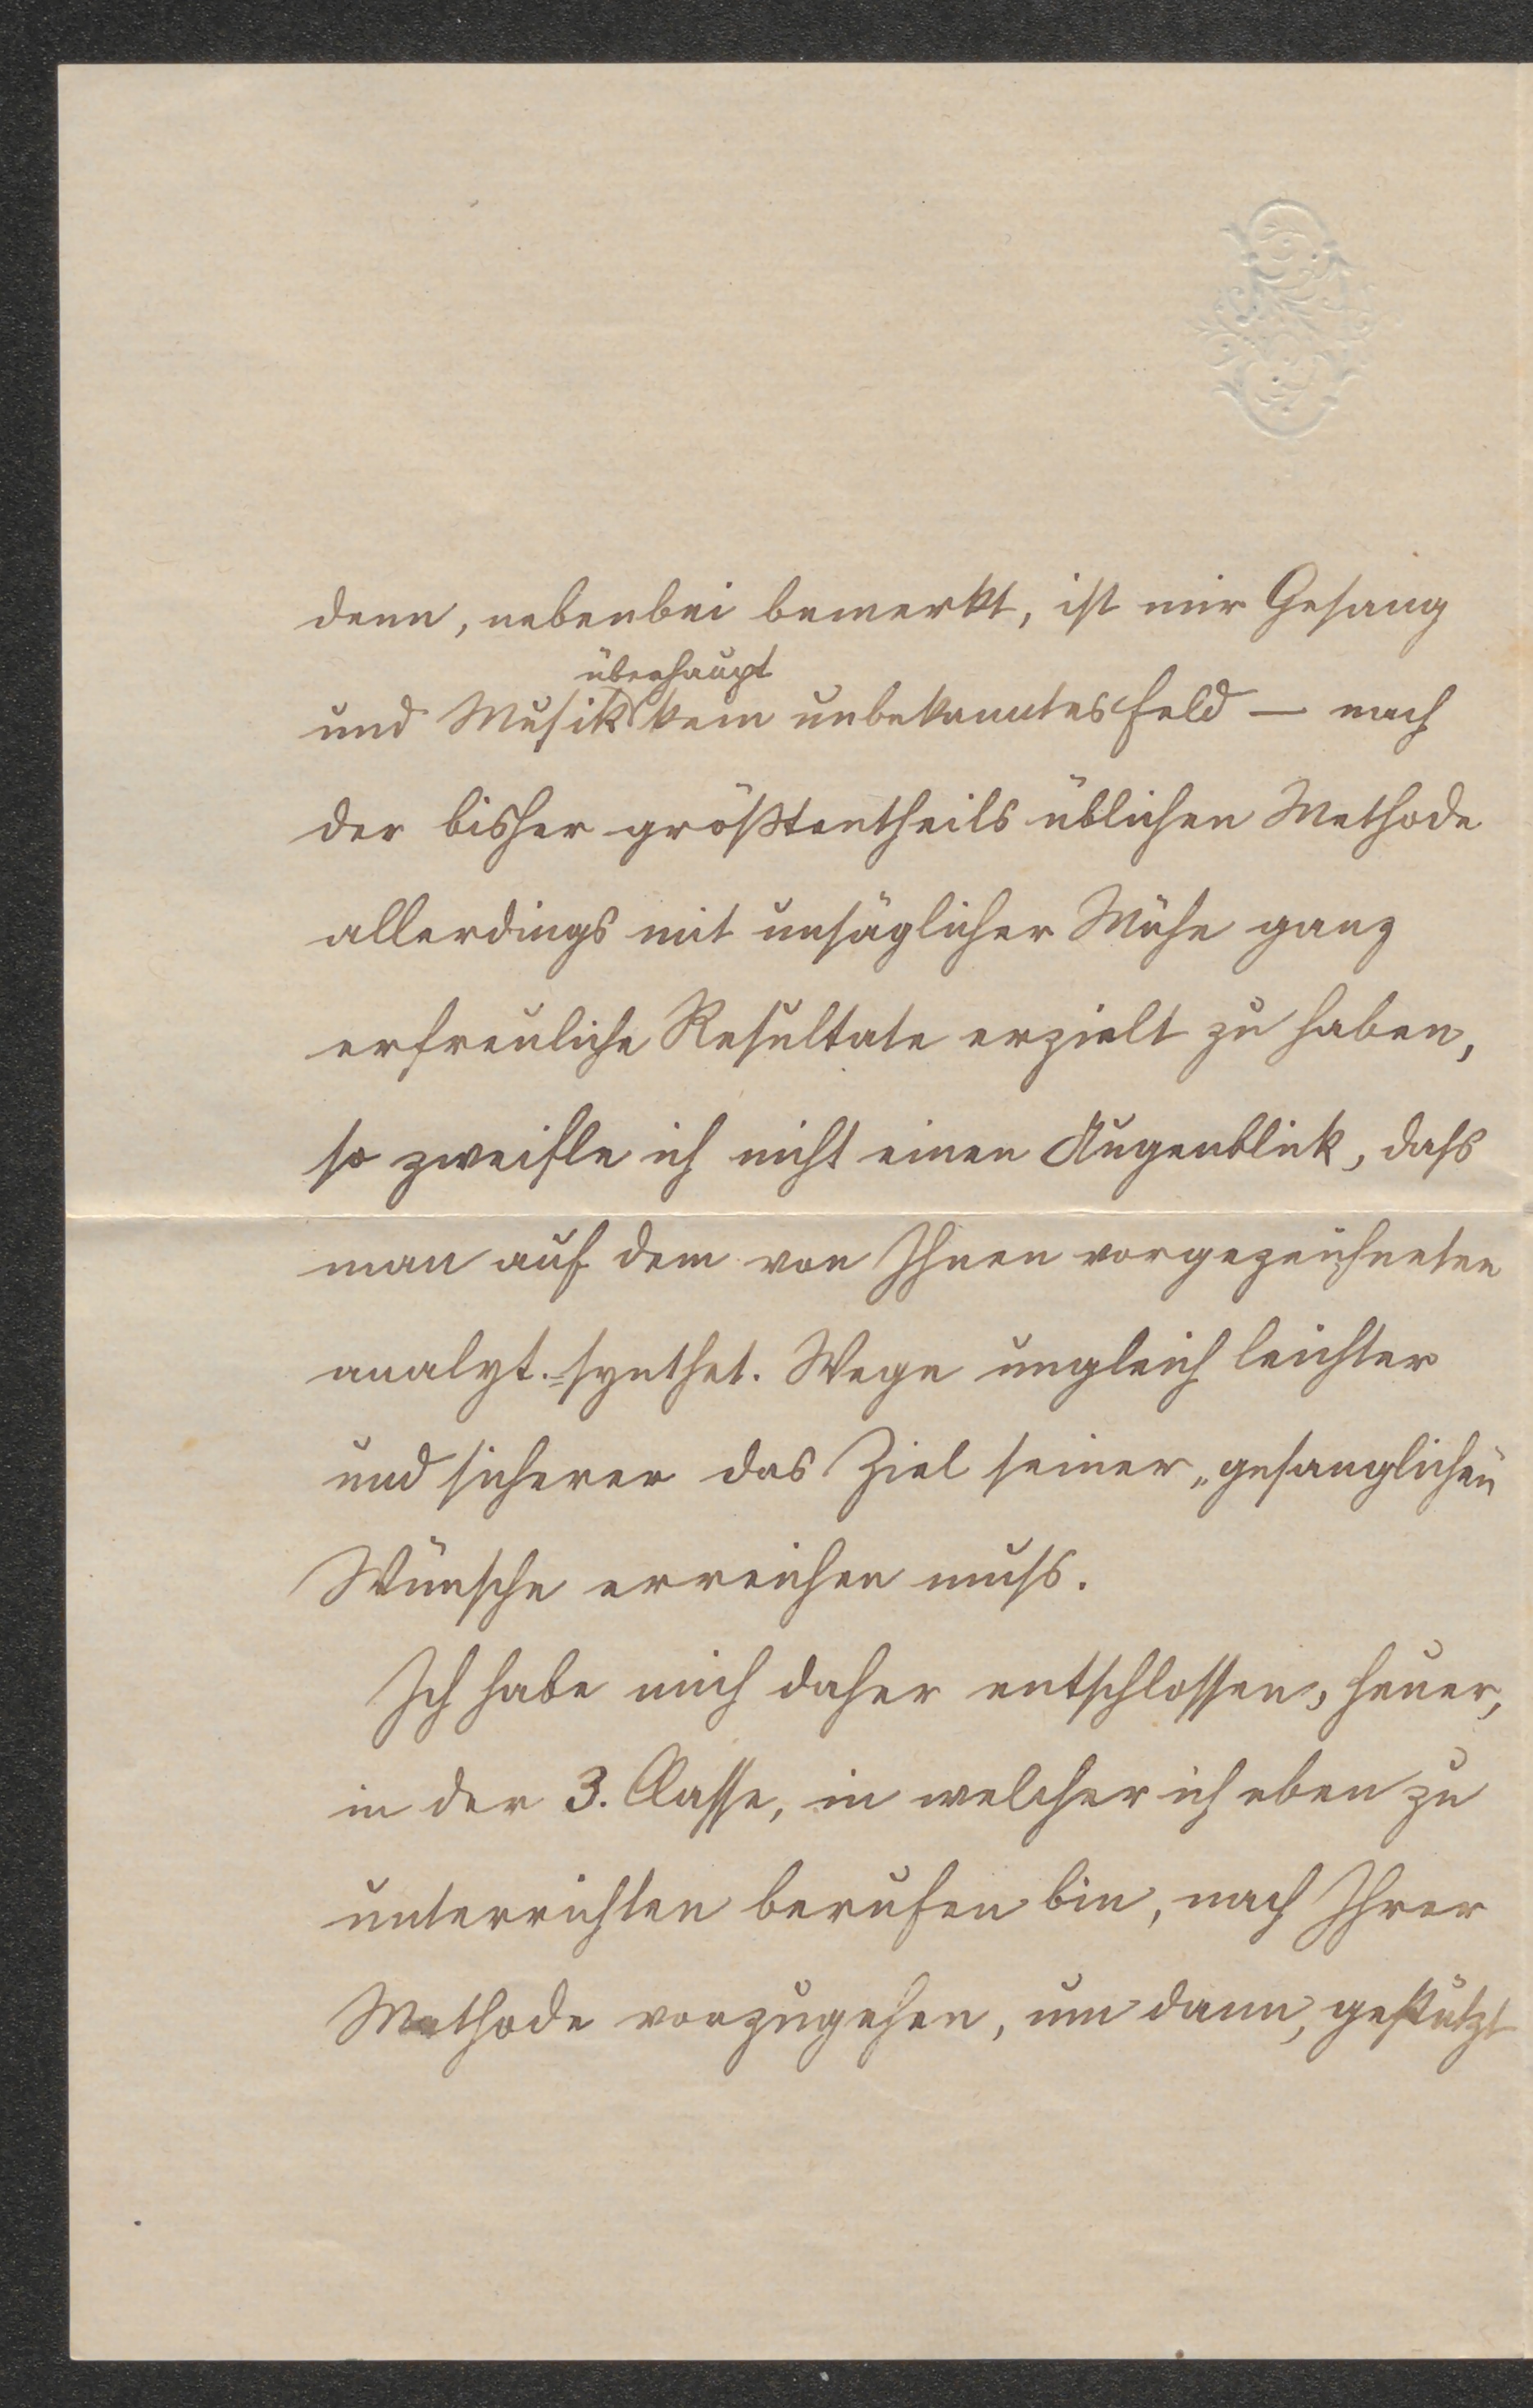 denn, nebenbei bemerkt, ist mir Gesang
überhaupt
und Musik kein unbekanntes Feld — nach
der bisher größtentheils üblichen Methode
allerdings mit unsäglicher Mühe ganz
erfreuliche Resultate erzielt zu haben,
so zweifle ich nicht einen Augenblick, dass
man auf dem von Ihnen vorgezeichneten
analyt.-synthet. Wege ungleich leichter
und sicherer das Ziel seiner „gesanglichen"
Wünsche erreichen muss.
Ich habe mich daher entschlossen, heuer,
in der 3. Classe, in welcher ich eben zu
unterrichten berufen bin, nach Ihrer
Methode vorzugehen, um dann, gestützt